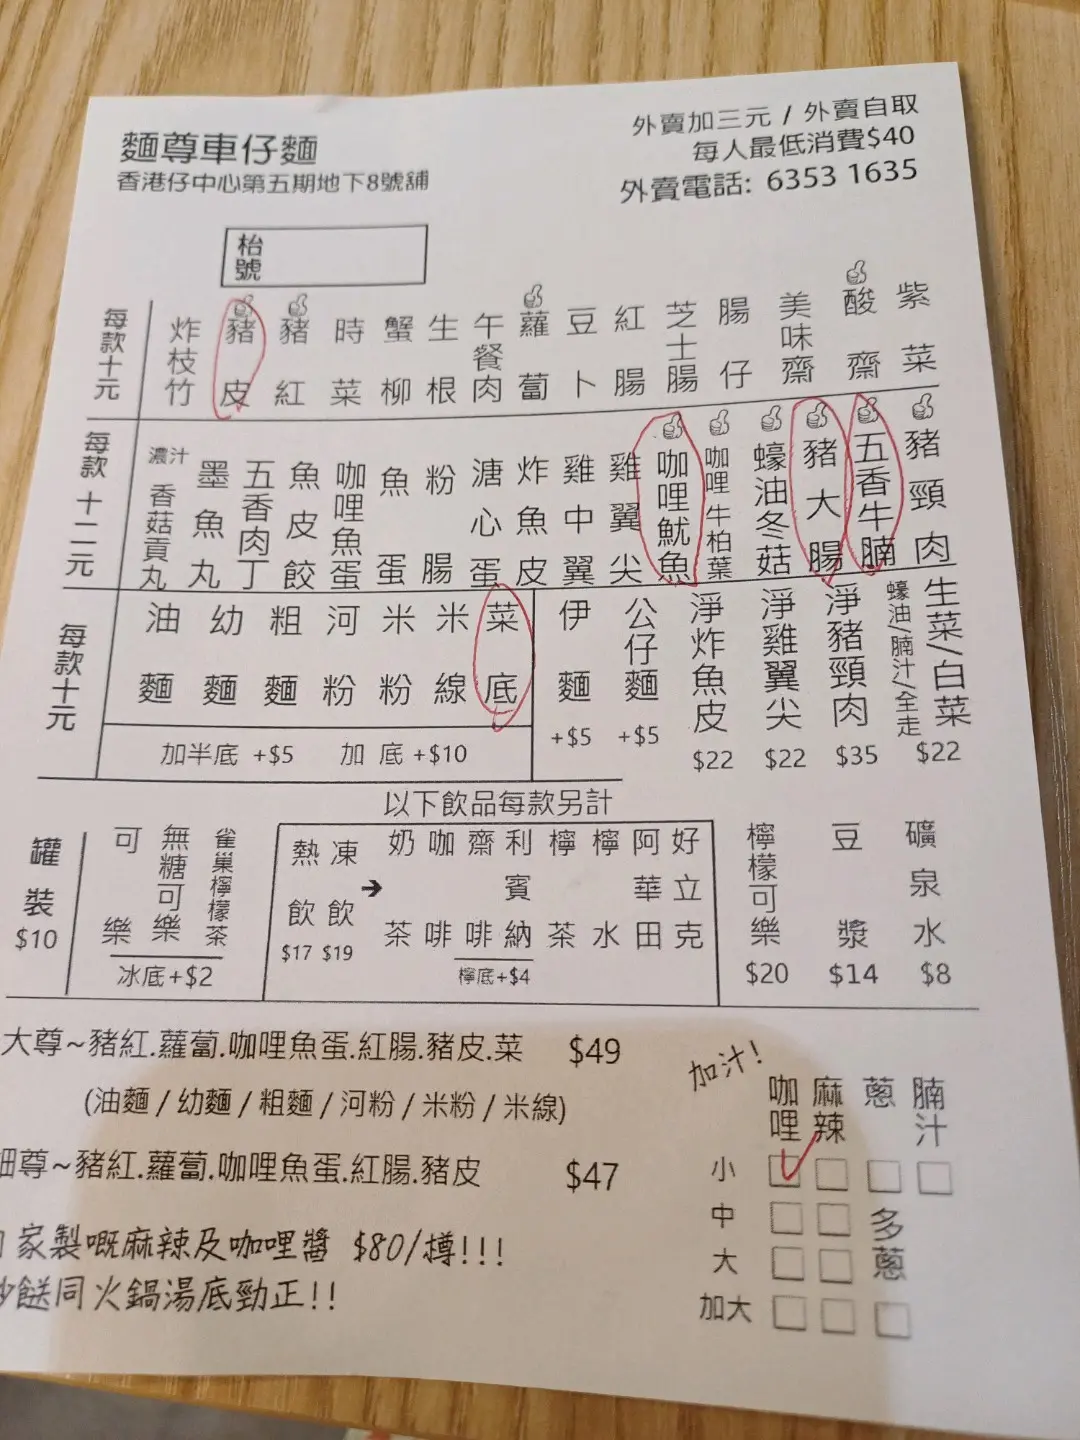 麵尊車仔麵
香港仔中心第五期地下8號舖
外賣加三元 / 外賣自取
每人最低消費$40
外賣電話: 6353 1635
枱號
每款十元
炸枝竹 豬皮 豬紅 時菜 蟹柳 生根 午餐肉 蘿蔔 豆卜 紅腸 芝士腸 腸仔 美味齋 酸齋 紫菜
每款十二元
濃汁香菇貢丸 墨魚丸 五香肉丁 魚皮餃 咖哩魚蛋 魚蛋 粉腸 溏心蛋 炸魚皮 雞中翼 雞翼尖 咖哩魷魚 咖哩牛柏葉 蠔油冬菇 豬大腸 五香牛腩 豬頸肉
每款十元
油麵 幼麵 粗麵 河粉 米粉 米線 菜底
加半底 +$5 加 底 +$10
伊麵 +$5
公仔麵 +$5
淨炸魚皮 $22
淨雞翼尖 $22
淨豬頸肉 $35
生菜/白菜 蠔油/腩汁/全走 $22
以下飲品每款另計
罐裝 $10
可樂 無糖可樂 雀巢檸檬茶
冰底+$2
熱飲 $17 凍飲 $19
➔
奶茶 咖啡 齋啡 利賓納 檸茶 檸水 阿華田 好立克
檸底+$4
檸檬可樂 $20
豆漿 $14
礦泉水 $8
大尊~豬紅.蘿蔔.咖哩魚蛋.紅腸.豬皮.菜 $49
(油麵 / 幼麵 / 粗麵 / 河粉 / 米粉 / 米線)
細尊~豬紅.蘿蔔.咖哩魚蛋.紅腸.豬皮 $47
家製嘅麻辣及咖哩醬 $80/樽!!!
炒餸同火鍋湯底勁正!!
加汁!
咖哩 麻辣 蔥 腩汁
小
中 多蔥
大
加大